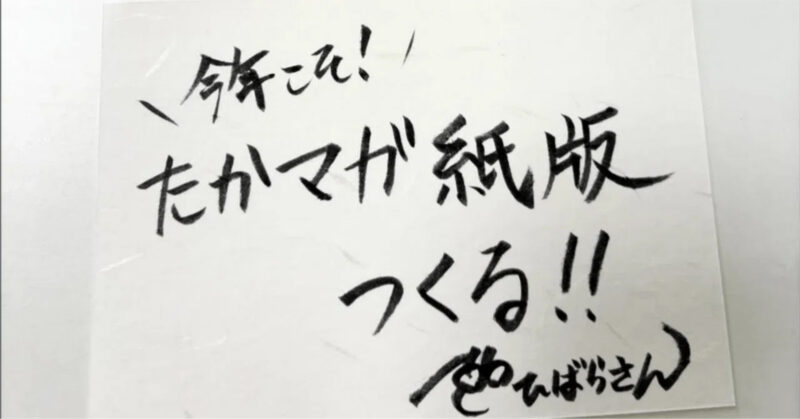 \今年こそ!/
たかマガ紙版
つくる!!
ひばらさん